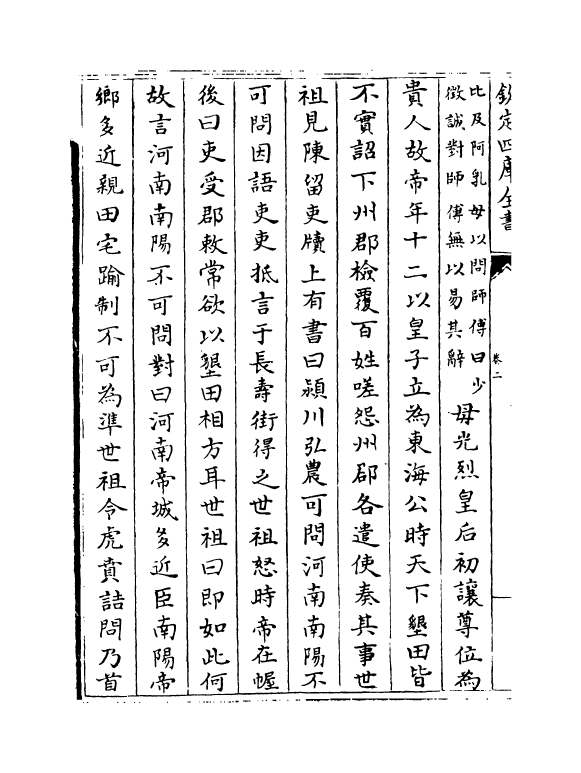 欽定四庫全書
卷二
比及阿乳母以問師傅曰少
微誠對師傅無以易其辭
母光烈皇后初讓尊位為
貴人故帝年十二以皇子立為東海公時天下墾田皆
不實詔下州郡檢覆百姓嗟怨州郡各遣使奏其事世
祖見陳留吏牘上有書曰潁川弘農可問河南南陽不
可問因語吏吏抵言于長壽街得之世祖怒時帝在幄
後曰吏受郡敕常欲以墾田相方耳世祖曰即如此何
故言河南南陽不可問對曰河南帝城多近臣南陽帝
鄉多近親田宅踰制不可為準世祖令虎賁詰問乃首